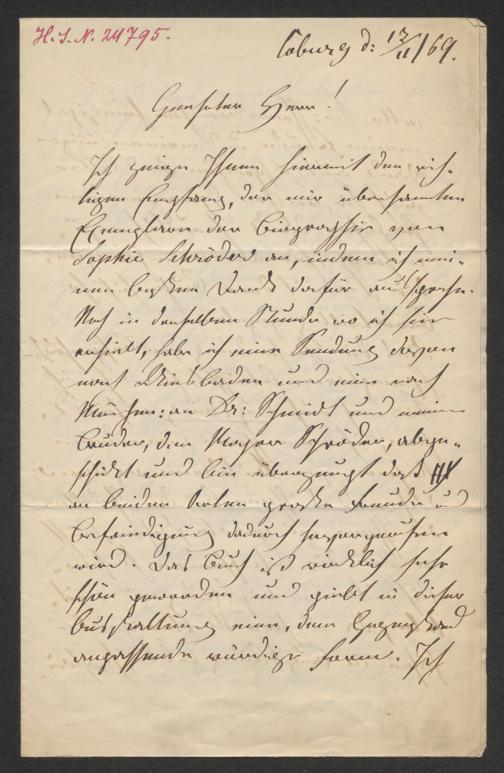 H. I. N. 24795.
Coburg d: 12/11/69.
Geehrter Herr!
Ich zeige Ihnen hiermit den rich-
tigen Empfang, der mir übersandten
Exemplare der Biographie von
Sophie Schröder an, indem ich mei-
nen besten Dank dafür ausspreche.
Noch in derselben Stunde wo ich sie
erhielt, habe ich eine Sendung davon
nach Wiesbaden und eine nach
München: an Dr: Schmidt und meinen
Bruder, den Major Schröder, abge-
schickt und bin überzeugt daß
an beiden Orten große Freude und
Befriedigung dadurch hervorgerufen
wird. Das Buch ist wirklich sehr
schön geworden und giebt in dieser
Ausstattung eine, dem Gegenstand
anpassende würdige Form. Ich